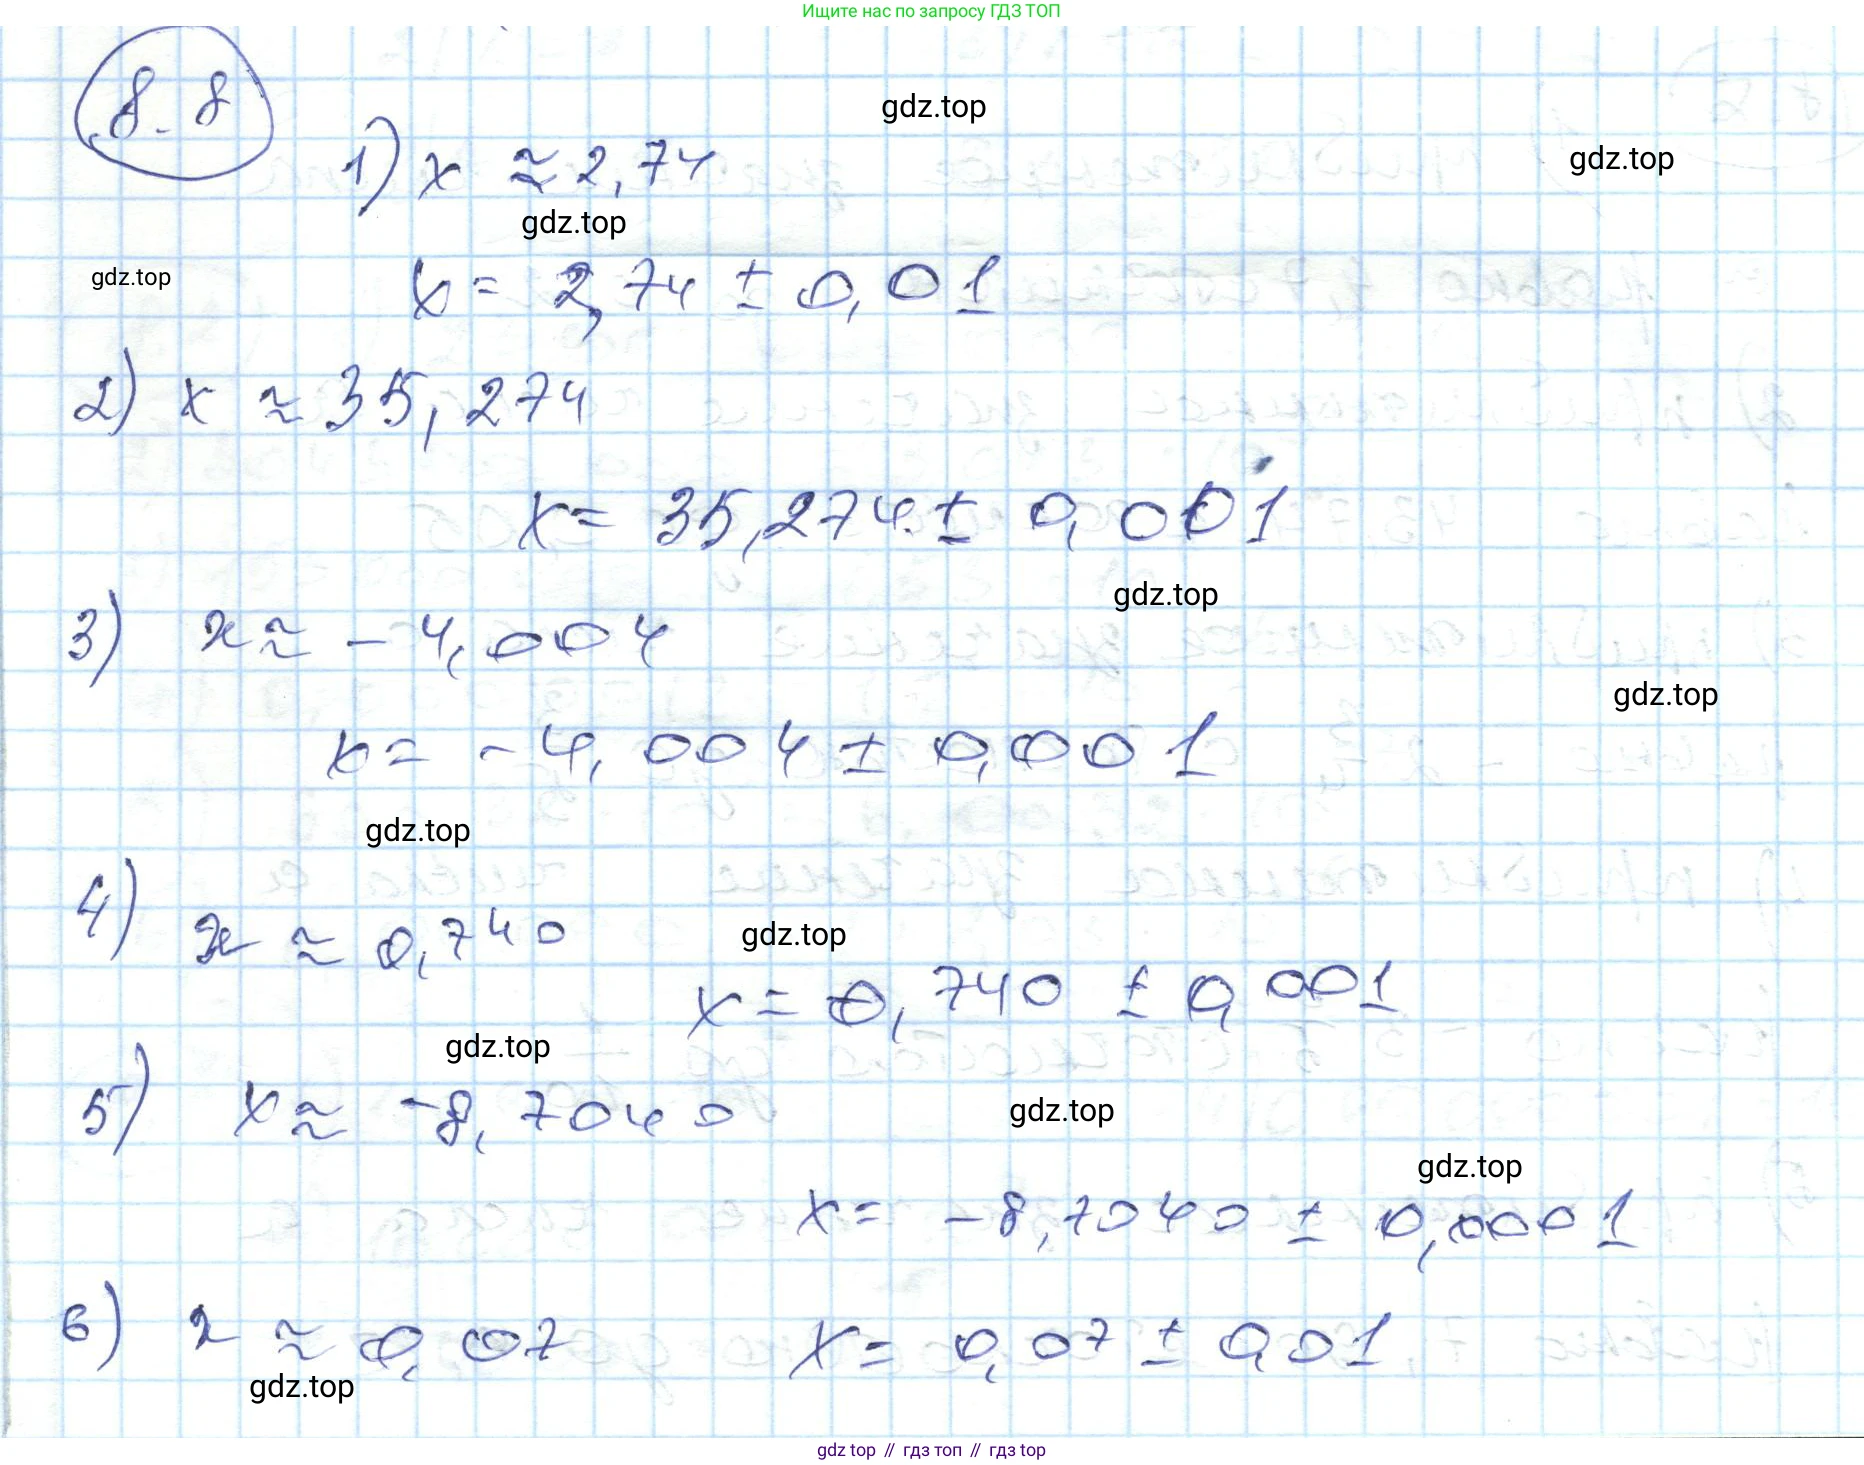 Ищите нас по запросу ГДЗ ТОП
8.8
gdz.top
1) x ≈ 2,74
gdz.top
gdz.top
gdz.top
x = 2,74 ± 0,01
2) x ≈ 35,274
x = 35,274 ± 0,001
gdz.top
3) x ≈ -4,004
gdz.top
x = -4,004 ± 0,001
gdz.top
4) x ≈ 0,740
gdz.top
x = 0,740 ± 0,001
gdz.top
5) x ≈ -8,7040
gdz.top
gdz.top
x = -8,7040 ± 0,0001
6) x ≈ 0,07 x = 0,07 ± 0,01
gdz.top
gdz top // гдз топ // гдз top